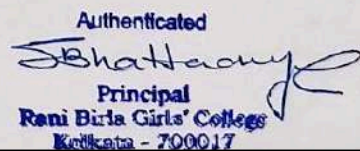 Authenticated
SBhattacharya
Principal
Rani Birla Girls' College
Kolkata - 700017